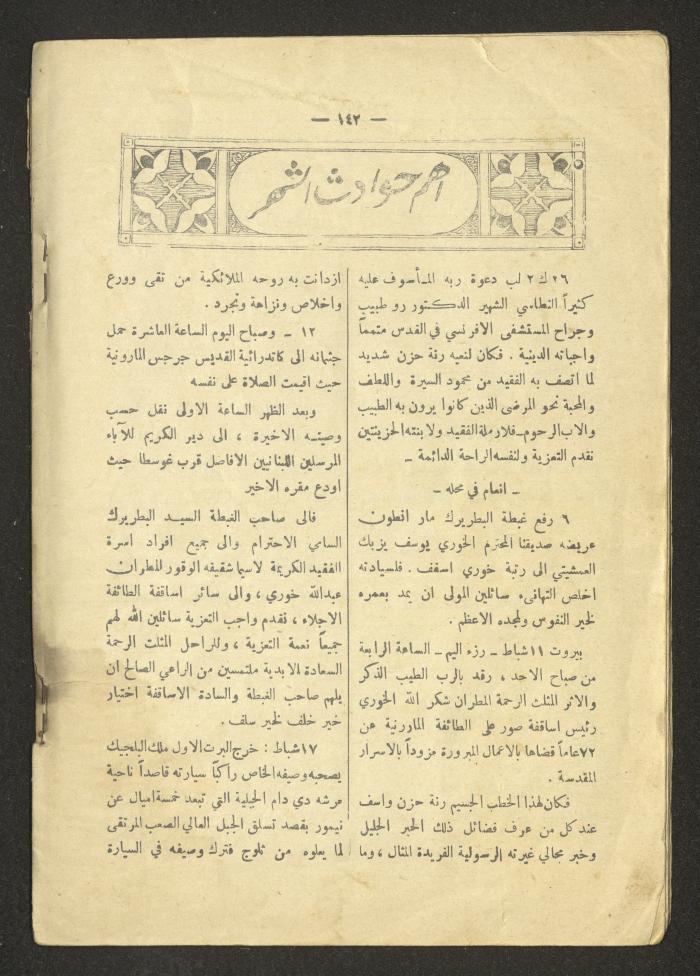 — ١٤٢ —
اهم حوادث الشهر
٢٦ ك ٢ لب دعوة ربه المأسوف عليه
كثيراً النطاسي الشهير الدكتور رو طبيب
وجراح المستشفى الافرنسي في القدس متمماً
واجباته الدينية . فكان لنعيه رنة حزن شديد
لما اتصف به الفقيد من محمود السيرة واللطف
والمحبة نحو المرضى الذين كانوا يرون به الطبيب
والاب الرحوم ـ فلارملة الفقيد ولابنته الحزينتين
نقدم التعزية ولنفسه الراحة الدائمة ـ
ـ انعام في محله ـ
٦ رفع غبطة البطريرك مار انطون
عريضه صديقنا المحترم الخوري يوسف يزبك
العمشيتي الى رتبة خوري اسقف . فلسيادته
اخلص التهانىء سائلين المولى ان يمد بعمره
لخير النفوس ولمجده الاعظم .
بيروت ١١ شباط ـ رزء اليم ـ الساعة الرابعة
من صباح الاحد ، رقد بالرب الطيب الذكر
والاثر المثلث الرحمة المطران شكر الله الخوري
رئيس اساقفة صور على الطائفة المارنية عن
٧٢ عاماً قضاها بالاعمال المبرورة مزوداً بالاسرار
المقدسة .
فكان لهذا الخطب الجسيم رنة حزن واسف
عند كل من عرف فضائل ذلك الحبر الجليل
وخبر مجالي غيرته الرسولية الفريدة المثال ، وما
ازدانت به روحه الملائكية من تقى وورع
واخلاص ونزاهة وتجرد .
١٢ ـ وصباح اليوم الساعة العاشرة حمل
جثمانه الى كاتدرائية القديس جرجس المارونية
حيث اقيمت الصلاة على نفسه
وبعد الظهر الساعة الاولى نقل حسب
وصيته الاخيرة ، الى دير الكريم للآباء
المرسلين اللبنانيين الافاصل قرب غوسطا حيث
اودع مقره الاخير
فالى صاحب الغبطة السيد البطريرك
السامي الاحترام والى جميع افراد اسرة
الفقيد الكريمة لاسيما شقيقه الوقور المطران
عبدالله خوري ، والى سائر اساقفة الطائفة
الاجلاء ، نقدم واجب التعزية سائلين الله لهم
جميعاً نعمة التعزية ، وللراحل المثلث الرحمة
السعادة الابدية ملتمسين من الراعي الصالح ان
يلهم صاحب الغبطة والسادة الاساقفة اختيار
خير خلف لخير سلف .
١٧ شباط : خرج البرت الاول ملك البلجيك
يصحبه وصيفه الخاص راكباً سيارته قاصداً ناحية
مرشه دي دام الجبلية التي تبعد خمسة اميال عن
نيمور بقصد تسلق الجبل العالي الصعب المرتقى
لما يعلوه من ثلوج فترك وصيفه في السيارة